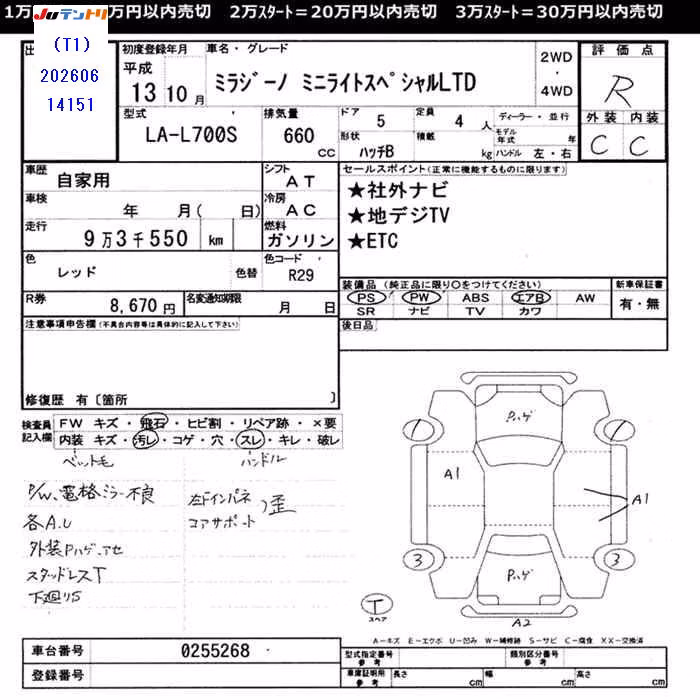 1万 万円以内売切 2万スタート=20万円以内売切 3万スタート=30万円以内売切
JUテントリ
(T1)
202606
14151
出
初度登録年月
平成
13 10 月
車名・グレード
ミラジーノ ミニライトスペシャルLTD
2WD
・
4WD
評価点
R
型式
LA-L700S
排気量
660
cc
ドア 5
定員 4 人
ディーラー・並行
形状 ハッチB
積載 kg
モデル年式 年
ハンドル 左・右
外装 内装
C C
車歴
自家用
シフト
AT
車検
年 月( 日)
冷房
AC
走行
9万3千550 km
燃料
ガソリン
色
レッド
色替
色コード
R29
R券
8,670円
名変通知期限
月 日
セールスポイント(正常に機能するものに限ります)
★社外ナビ
★地デジTV
★ETC
装備品(純正品に限り〇をつけてください)
新車保証書
PS PW ABS エアB AW
SR ナビ TV カワ
有・無
後日品
注意事項申告欄(不具合内容等は具体的に記入して下さい)
修復歴 有〔箇所 〕
検査員
記入欄
FW キズ・飛石・ヒビ割・リペア跡・×要
内装 キズ・汚レ・コゲ・穴・スレ・キレ・破レ
ペット毛 ハンドル
P/W、電格ミラー不良
各A.U
外装Pハゲ、アセ
スタッドレスT
下廻りS
左ドインパネ
コアサポート
歪
Pハゲ
1 1
A1
A1
3 3
Pハゲ
T
スペア
A2
A-キズ E-エクボ U-凹み W-補修跡 S-サビ C-腐食 XX-交換済
車台番号
0255268
登録番号
型式指定番号
参考
類別区分番号
参考
車庫証明用
参考
長さ cm
幅 cm
高さ cm